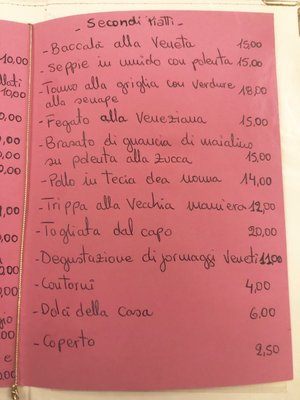 10,00
llati
10,00
0,00
9,00
0,00
,00
9,00
,00
2,00
gio
,00
e
,00
- Secondi Piatti -
- Baccalà alla Veneta 15,00
- Seppie in umido con polenta 15,00
- Tonno alla griglia con verdure
alla senape 18,00
- Fegato alla Veneziana 15,00
- Brasato di guancia di maialino
su polenta alla zucca 15,00
- Pollo in Tecia dea nonna 14,00
- Trippa alla Vecchia maniera 12,00
- Tagliata dal capo 20,00
- Degustazione di formaggi Veneti 11,00
- Contorni 4,00
- Dolci della Casa 6,00
- Coperto 2,50